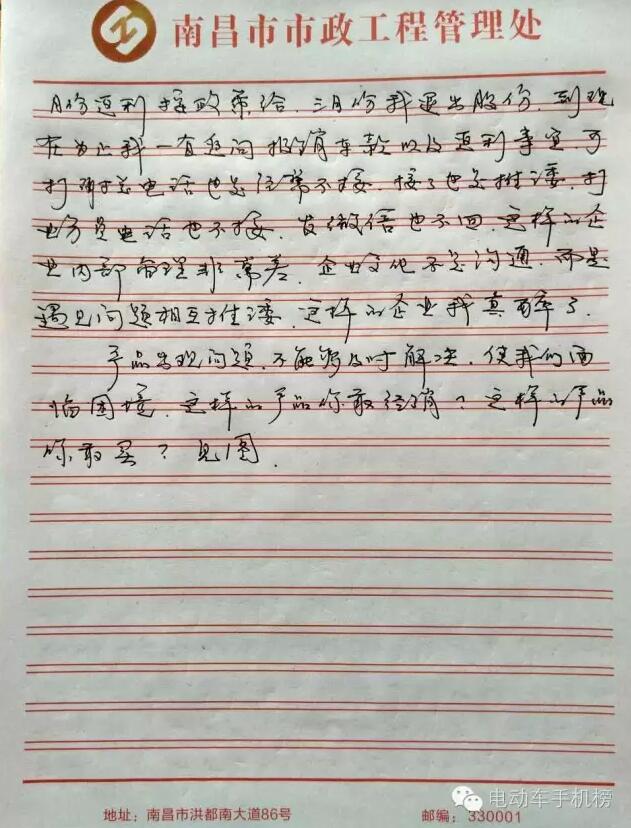 南昌市市政工程管理处
月份返利按政策给.三月份我退出股份.到现
在为止我一直追问报销车款以及返利事宜.可
打电话也总经常不接.接了也总推诿.打
业务员电话也不接.发微信也不回.这样的企
业内部管理非常差.企业文化不是沟通.而是
遇见问题相互推诿.这样的企业我真醉了.
产品出现问题.不能够及时解决.使我们面
临困境.这样的产品你敢经销?这样的产品
你敢买?见图.
电动车手机榜
地址:南昌市洪都南大道86号 邮编:330001